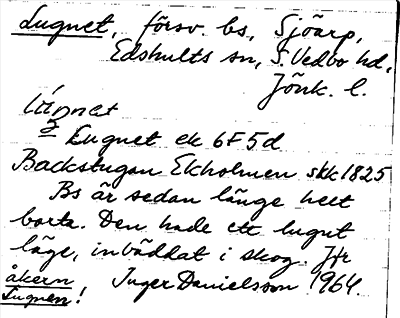 Lugnet, försv. bs., Sjöarp,
Edshults sn, S. Vedbo hd,
Jönk. l.
Lugnet ek 6F5d
Backstugan Ekholmen skk 1825
Bs är sedan länge helt
borta. Den hade ett lugnt
läge, inbäddat i skog. Jfr
åkern Inger Danielsson 1964.
Lugnen!